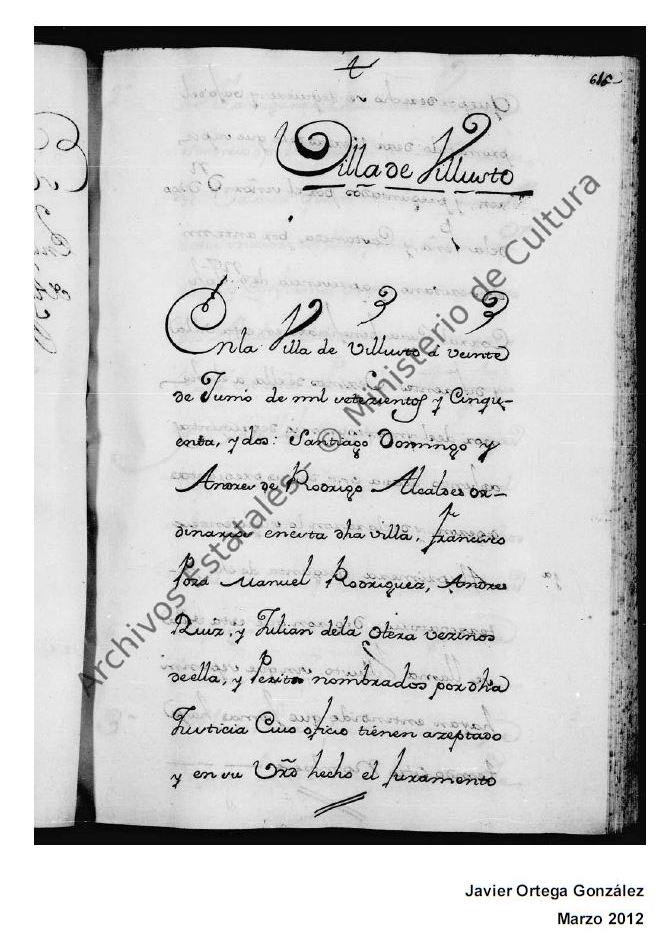 616
Villa de Villusto
En la Villa de Villusto à veinte
de Junio de mil setezientos y Cinqu-
enta, y dos: Santiago Domingo y
Andres de Rodrigo Alcaldes or-
dinarios en esta dha villa, francisco
Poza Manuel Rodriguez, Andres
Ruiz, y Julian de la Otera vezinos
de ella, y Peritos nombrados por dha
Justicia Cuio oficio tienen azeptado
y en su Vrd hecho el Juramento
© Ministerio de Cultura
Archivos Estatales
Javier Ortega González
Marzo 2012